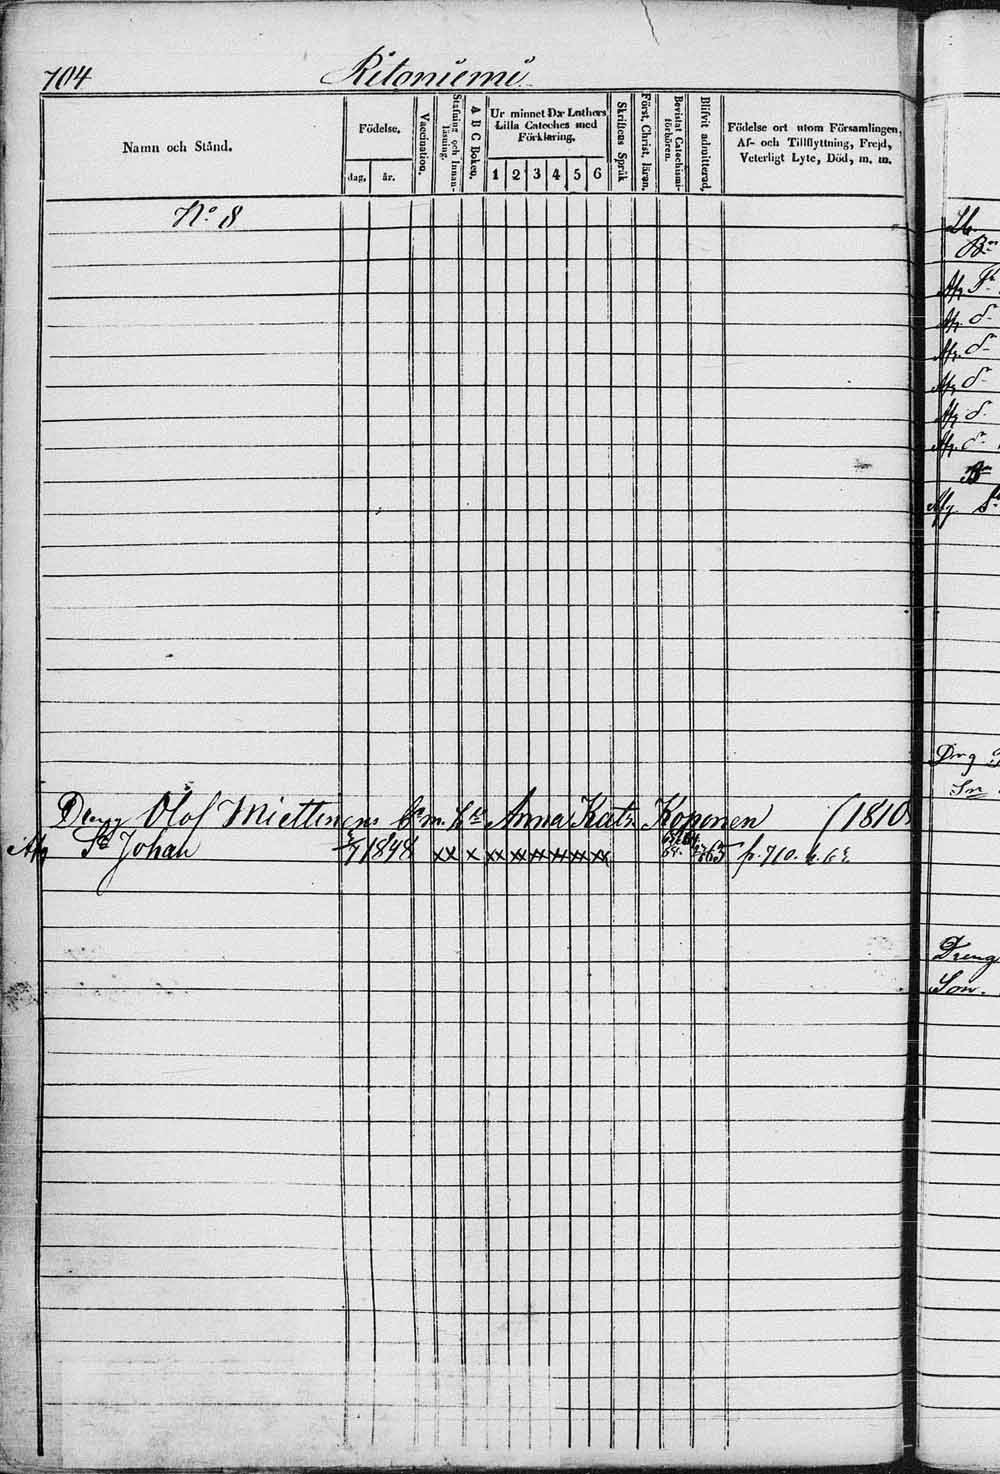 704 Ritoniemi
Namn och Stånd.
Födelse.
dag. år.
Vaccination.
Stafning och Innanläsning.
A B C Boken.
Ur minnet D:r Luthers Lilla Cateches med Förklaring.
1 2 3 4 5 6
Skriftens Språk
Först. Christ. läran.
Bevistat Catechismiförhören.
Blifvit admitterad.
Födelse ort utom Församlingen, Af- och Tillflyttning, Frejd, Veterligt Lyte, Död, m. m.
N:o 8
Dreng Olof Miettinens Anna Koponen (1810
Afg S:n Johan 1848 xx x xx xx xx xx xx xx 63 p. 710.
Afg
Afg
Afg
Afg
Afg
Afg
Afg
Drg
Sn
Dreng
Son.